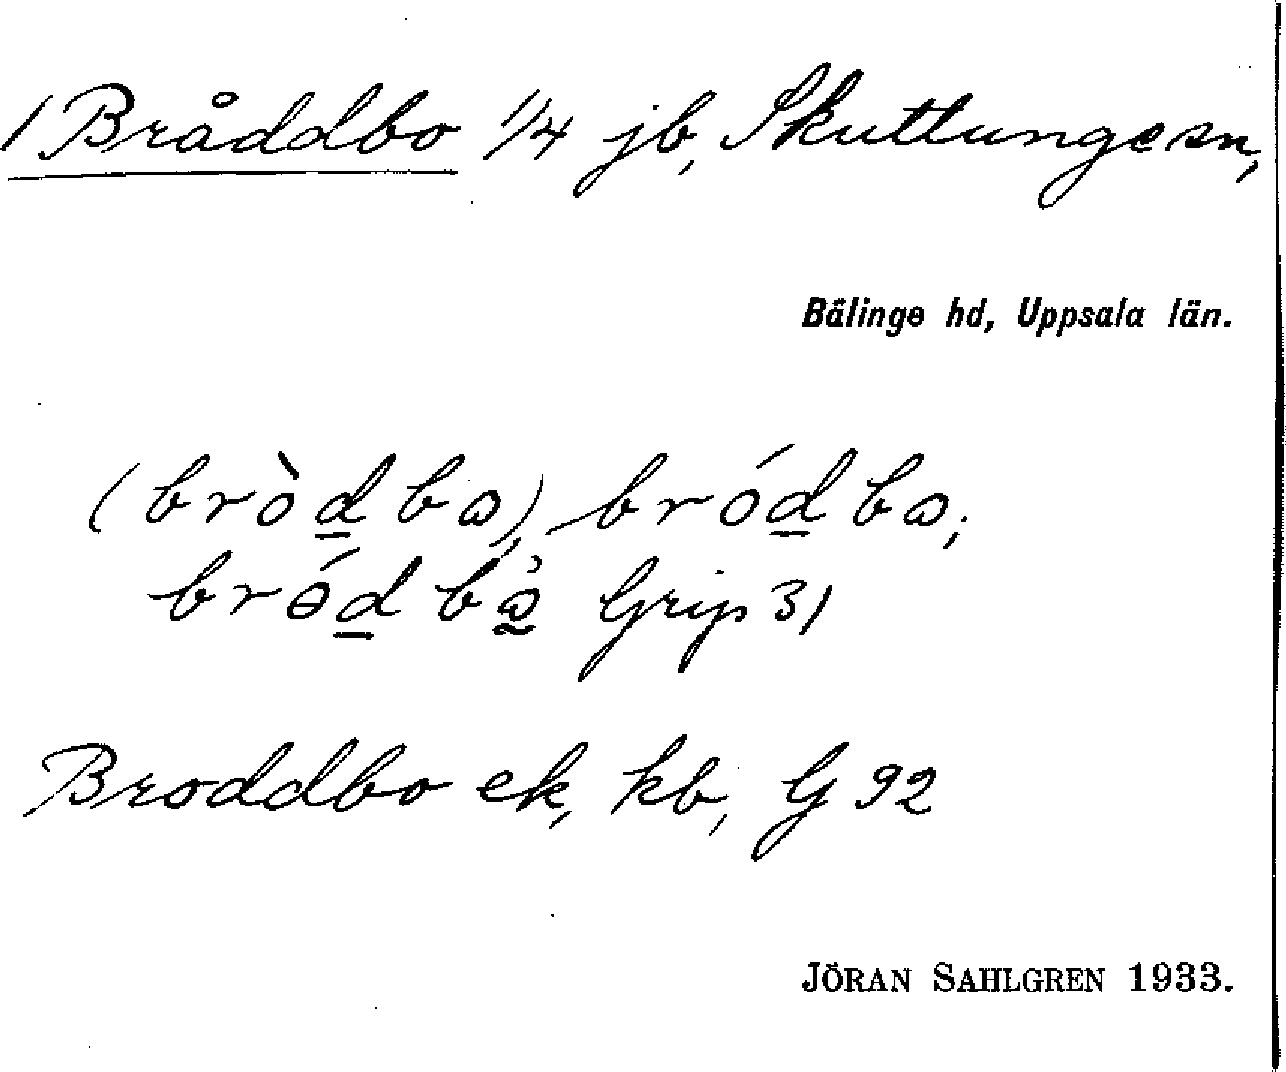 1 Bråddbo 1/4 jb, Skuttunge sn,
Bälinge hd, Uppsala län.
(bròd̲ bɷ), bród̲ bɷ,
brɵ́d̲ bɷ̰̓ Grip 31
Broddbo ek, kb, G 92
JÖRAN SAHLGREN 1933.